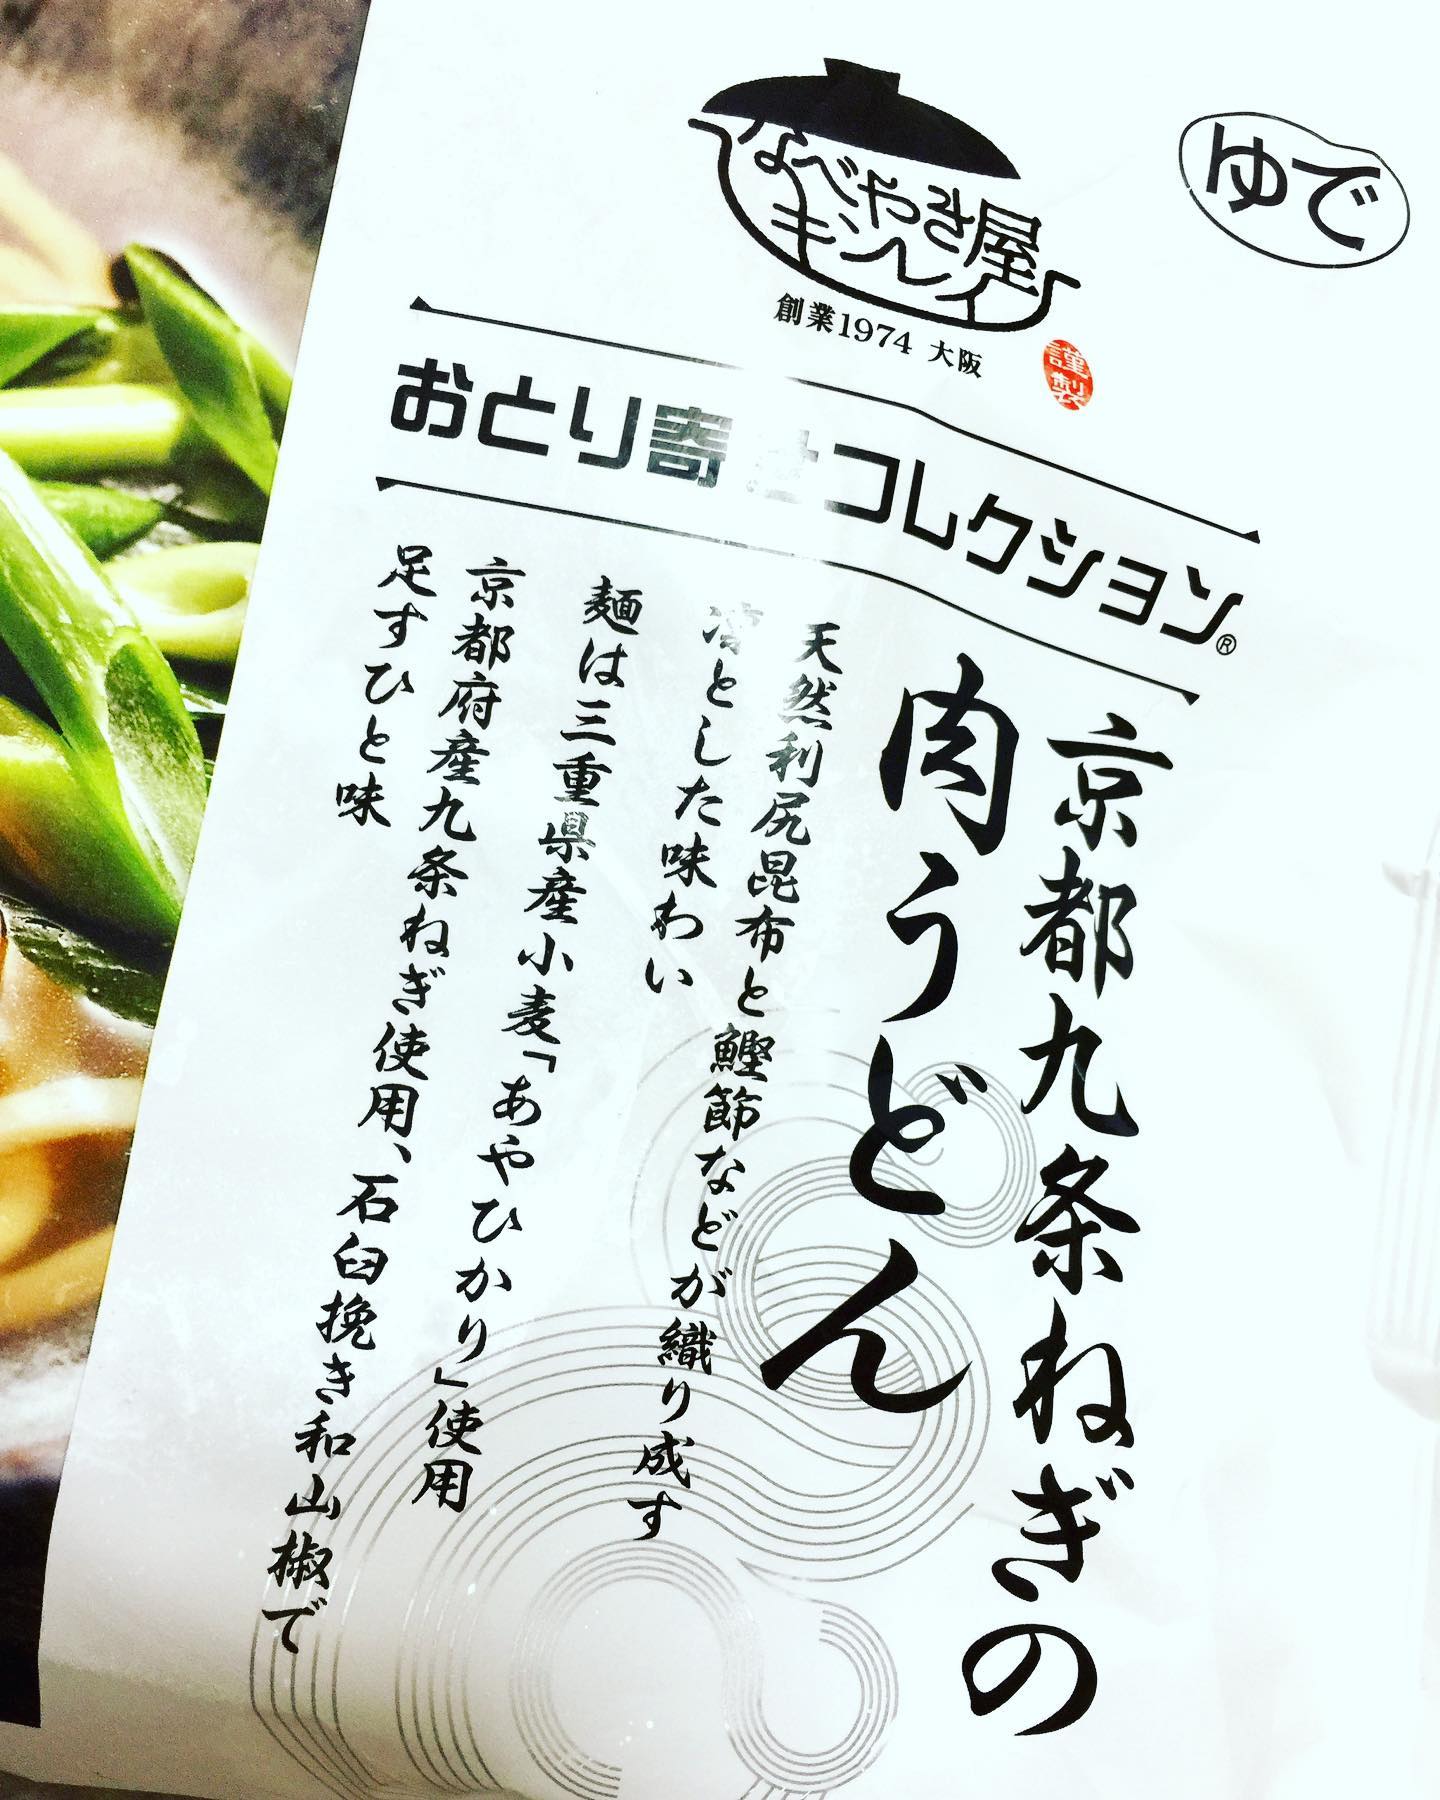 なべやき屋
キンレイ
創業1974 大阪
謹製
ゆで
おとり寄せコレクション®
京都九条ねぎの
肉うどん
天然利尻昆布と鰹節などが織り成す
凛とした味わい
麺は三重県産小麦「あやひかり」使用
京都府産九条ねぎ使用、石臼挽き和山椒で
足すひと味